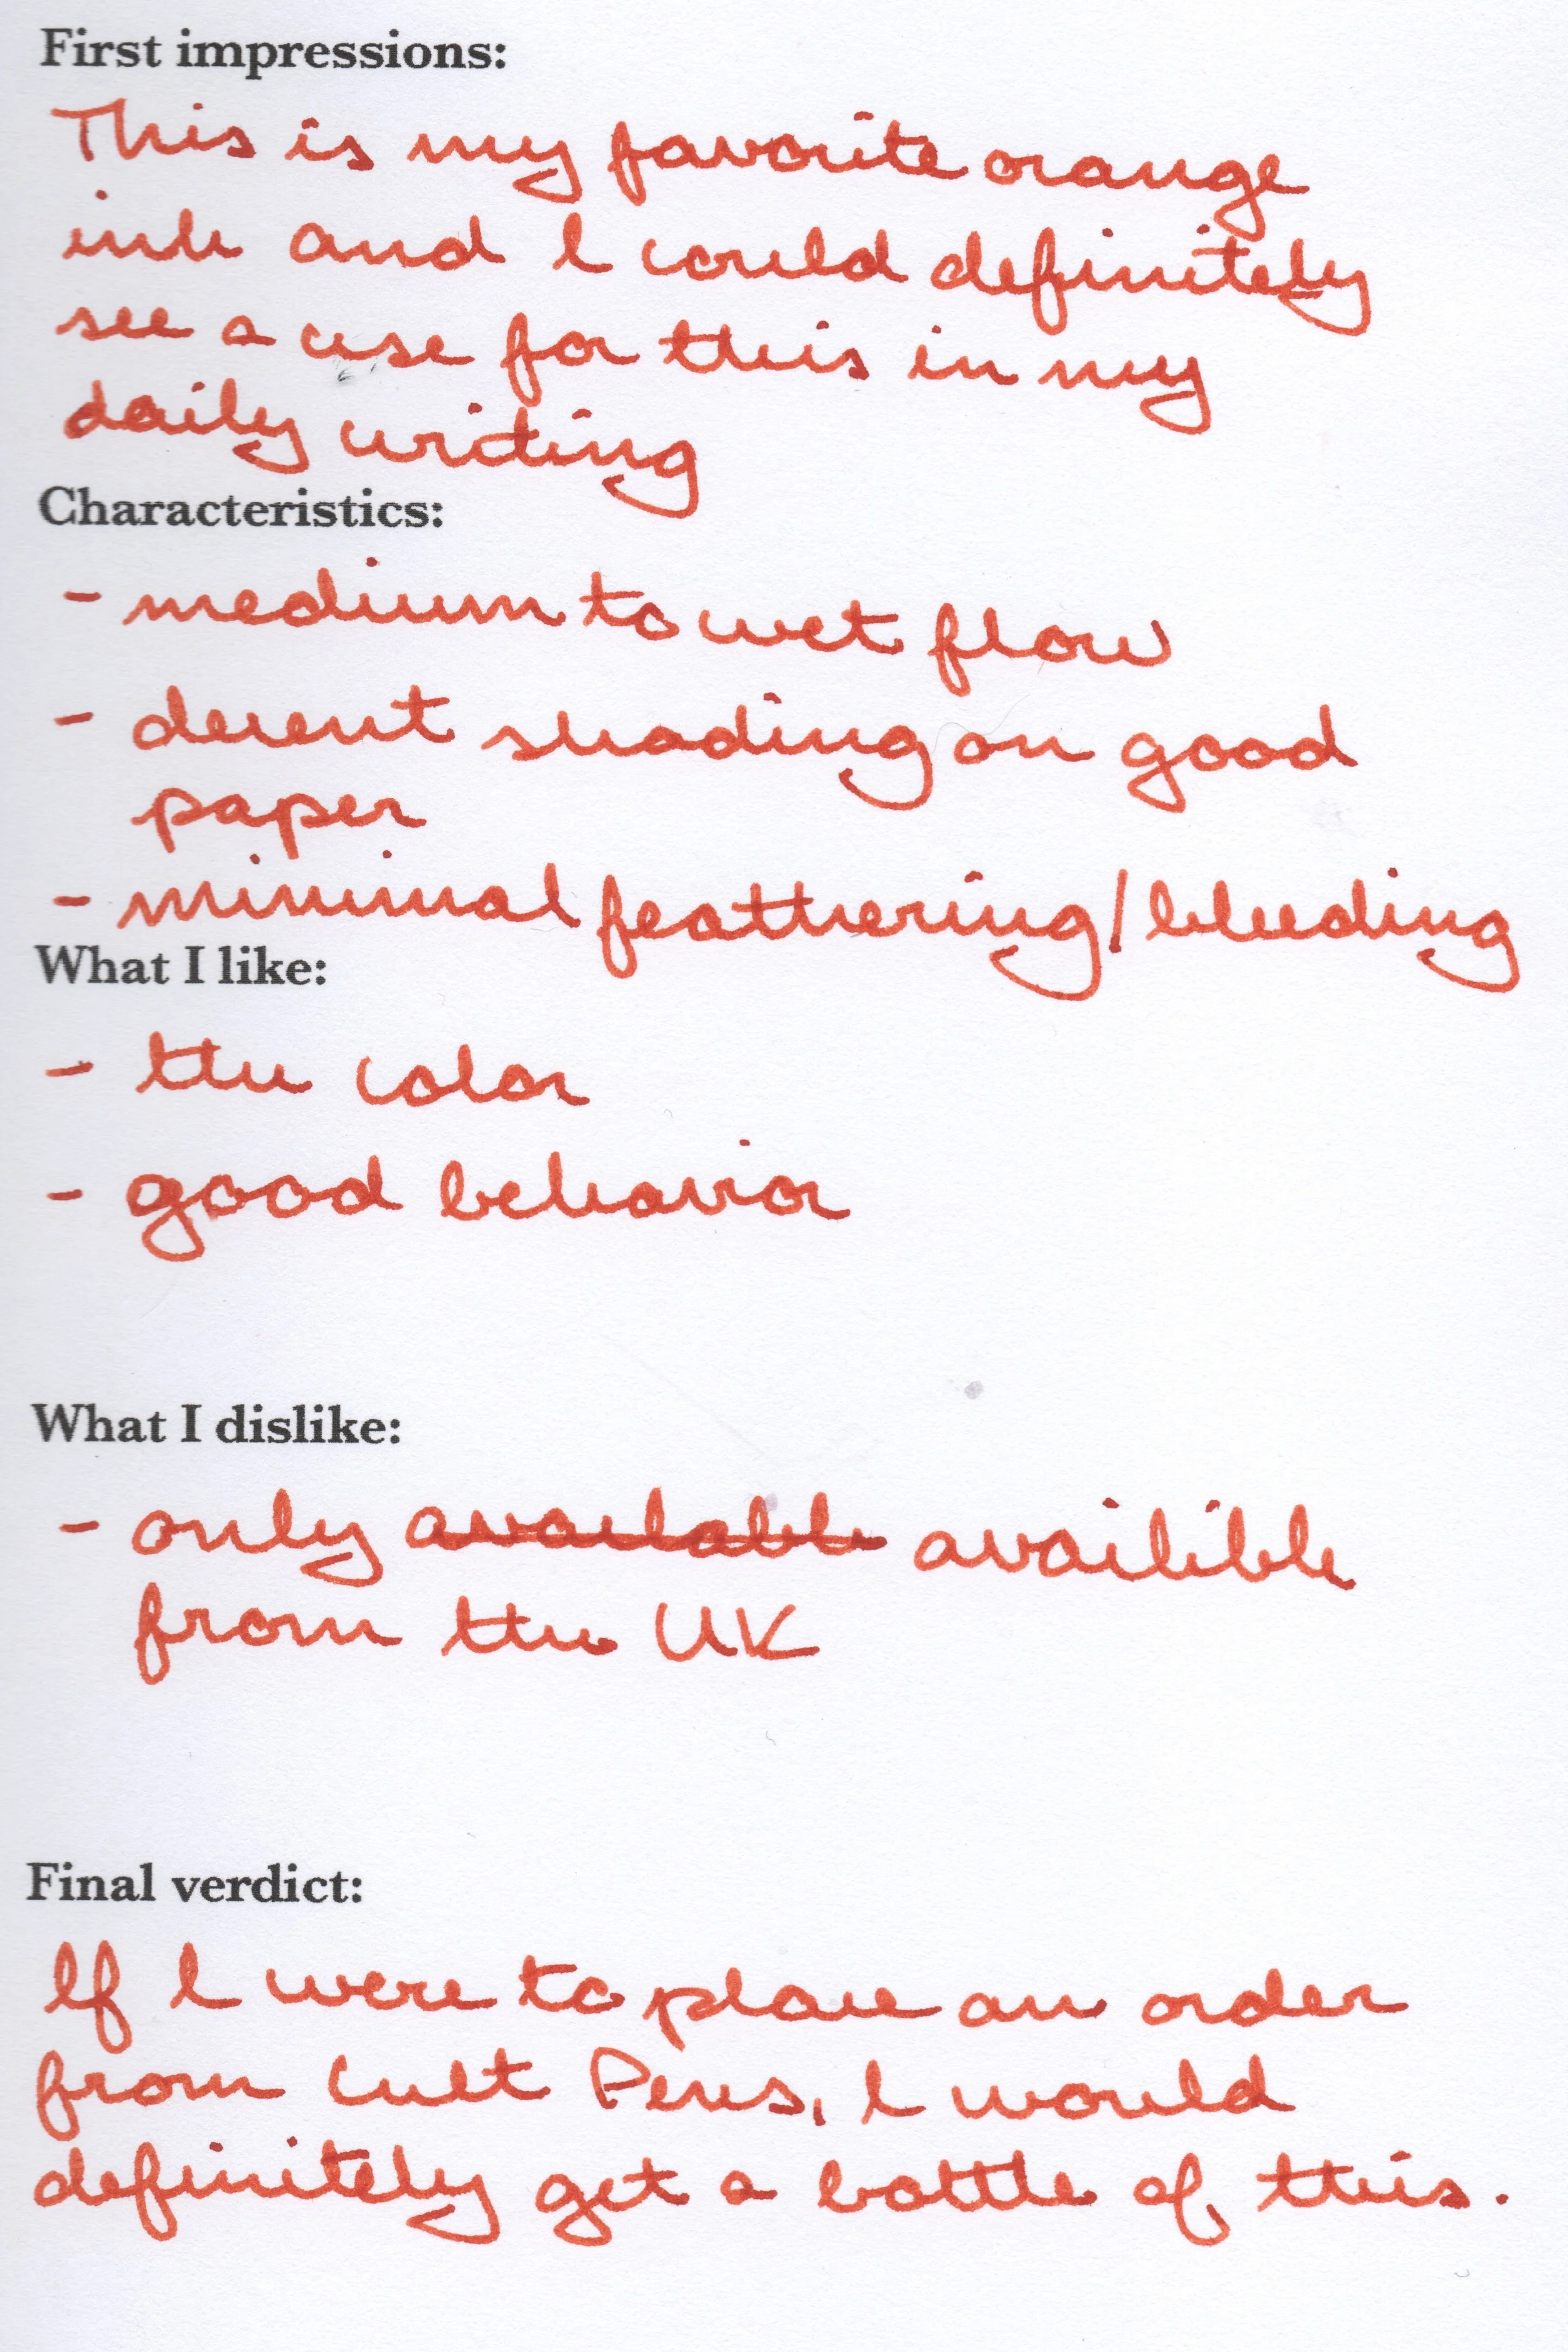 First impressions:
This is my favorite orange
ink and I could definitely
see a use for this in my
daily writing
Characteristics:
- medium to wet flow
- decent shading on good
paper
- minimal feathering/bleeding
What I like:
- the color
- good behavior
What I dislike:
- only available availible
from the UK
Final verdict:
If I were to place an order
from Cult Pens, I would
definitely get a bottle of this.